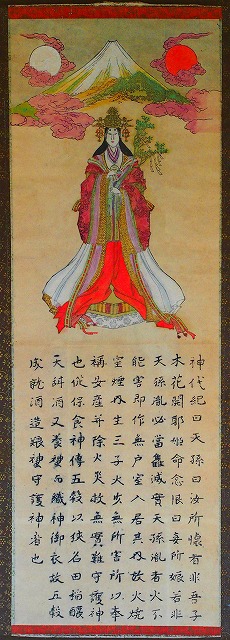 神代紀曰天孫曰汝所懐者非吾子
木花開耶姫命忿恨曰妾所娠若非
天孫胤必當滅實天孫胤者火不
能害即作無戸室入居其内放火焼
室煙内生三子火無所害所以奉
稱安産并除火災故無難守護神
也従保食神傳五穀以狭名田稲醸
天甜酒又養而織神御衣故五穀
成就酒造守護神者也